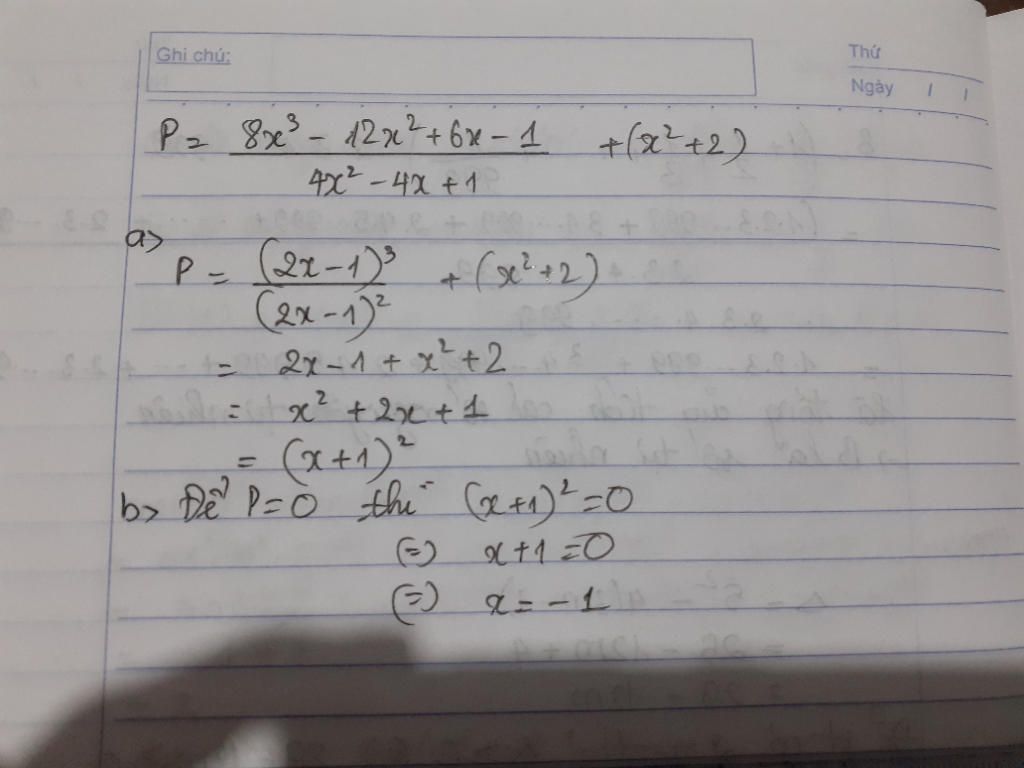 Ghi chú:
Thứ
Ngày / /
P = (8x³ - 12x² + 6x - 1)/(4x² - 4x + 1) + (x² + 2)
a>
P = (2x - 1)³/(2x - 1)² + (x² + 2)
= 2x - 1 + x² + 2
= x² + 2x + 1
= (x + 1)²
b> Để P = 0 thì (x + 1)² = 0
(=) x + 1 = 0
(=) x = - 1